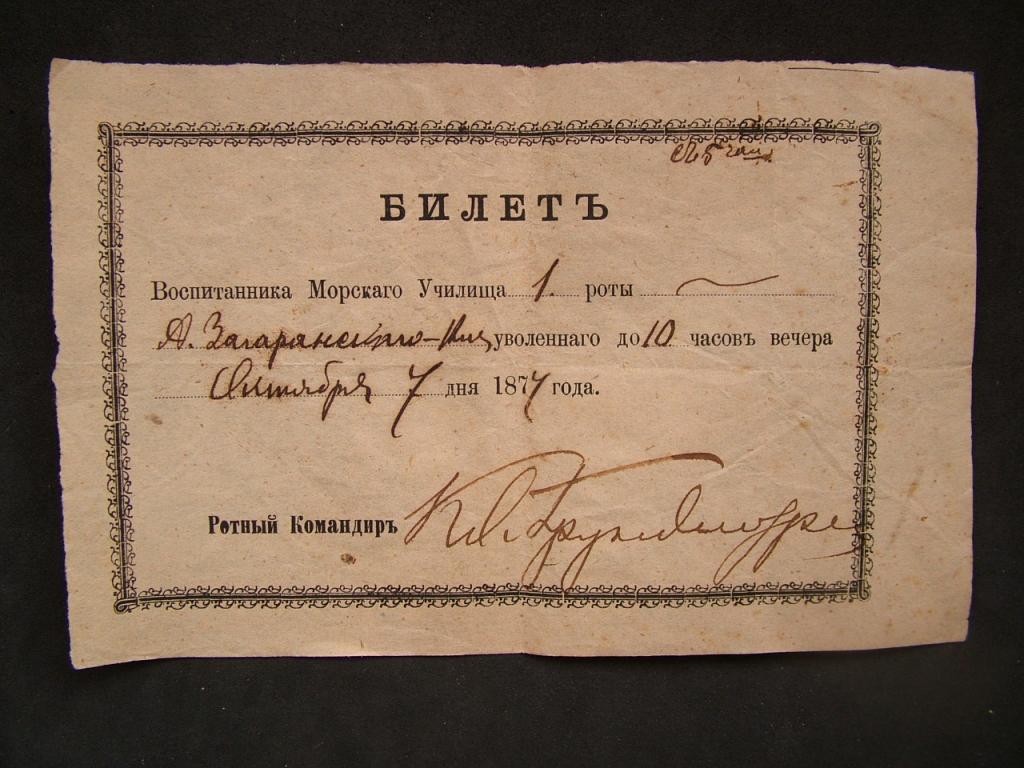 съ 5 час.
БИЛЕТЪ
Воспитанника Морскаго Училища 1. роты
А. уволеннаго до 10 часовъ вечера
Октября 7 дня 1877 года.
Ротный Командиръ